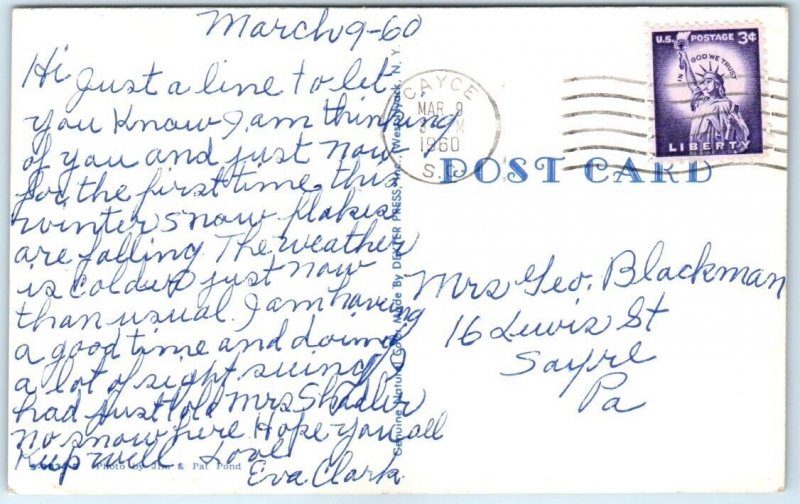 March 9-60
Hi Just a line to let
you know I am thinking
of you and just now
for the first time this
winter snow flakes
are falling The weather
is colder just now
than usual. I am having
a good time and doing
a lot of sight seeing I
had just told Mrs
no snow here Hope you all
Keep well Love
Eva Clark
Photo by Jim & Pat Pond
Genuine Natural Color Made By DEXTER PRESS, Inc., West Nyack, N. Y.
CAYCE
MAR 9
M
1960
S.C.
U.S. POSTAGE 3¢
IN GOD WE TRUST
LIBERTY
POST CARD
Mrs Geo. Blackman
16 Lewis St
Sayre
Pa